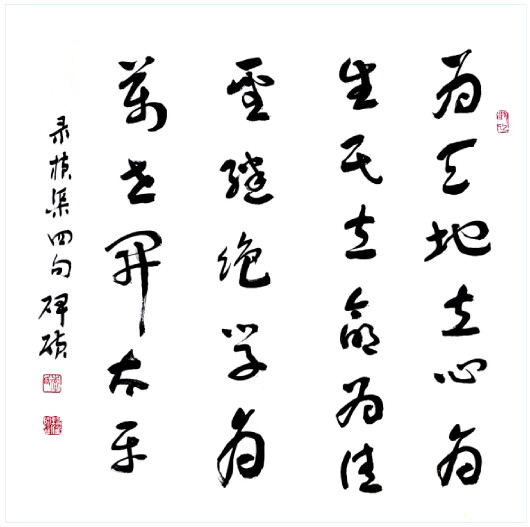 为天地立心为
生民立命为往
圣继绝学为
萬世開太平
录横渠四句 碑硕